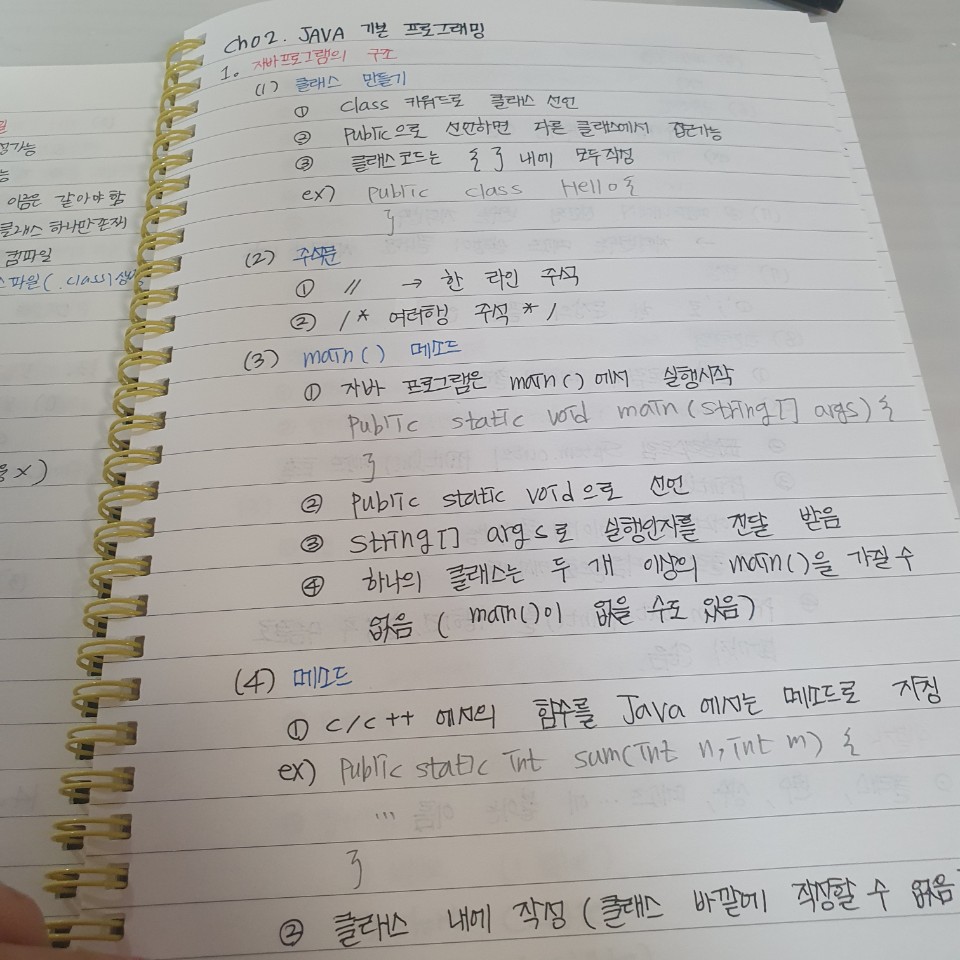 이름은 같아야 함
클래스 하나만 존재
컴파일
Ch02. JAVA 기본 프로그래밍
1. 자바프로그램의 구조
(1) 클래스 만들기
① class 키워드로 클래스 선언
② Public으로 선언하면 다른 클래스에서 접근가능
③ 클래스코드는 { } 내에 모두작성
ex) Public class Hello {
}
(2) 주석문
① // → 한 라인 주석
② /* 여러행 주석 */
(3) main() 메소드
① 자바 프로그램은 main()에서 실행시작
Public static void main (String[] args) {
}
② Public static void으로 선언
③ String[] args로 실행인자를 전달 받음
④ 하나의 클래스는 두 개 이상의 main()을 가질 수
없음 ( main()이 없을 수도 있음)
(4) 메소드
① C/C++ 에서의 함수를 Java 에서는 메소드로 지칭
ex) Public static int sum(int n, int m) {
...
}
② 클래스 내에 작성 (클래스 바깥에 작성할 수 없음